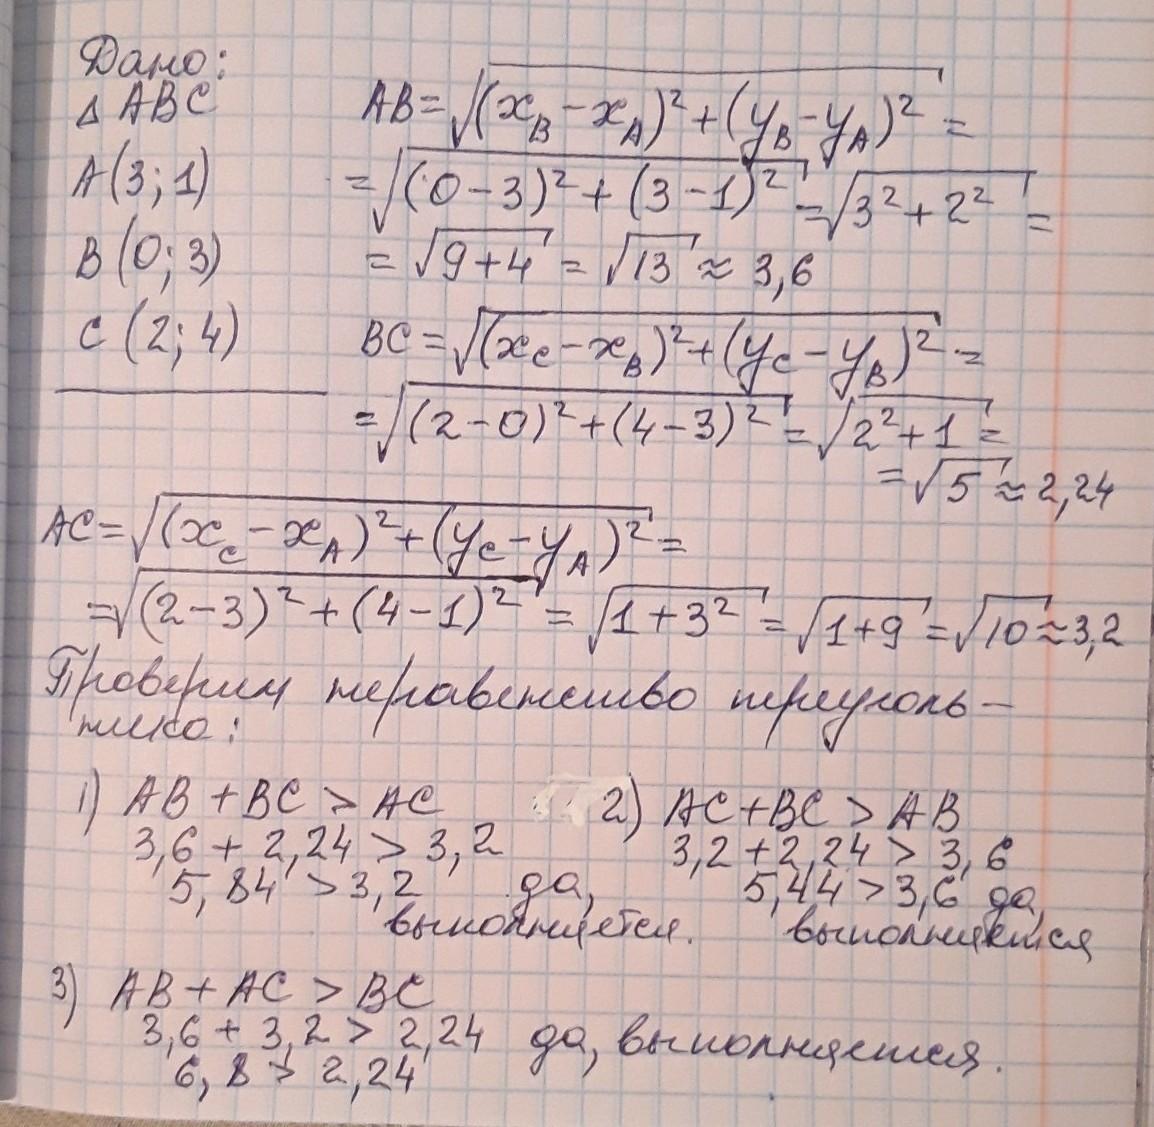 Дано:
Δ ABC AB=√((x_B−x_A)²+(y_B−y_A)²)=
A(3;1) =√((0−3)²+(3−1)²)=√(3²+2²)=
B(0;3) =√(9+4)=√13≈3,6
C(2;4) BC=√((x_C−x_B)²+(y_C−y_B)²)=
=√((2−0)²+(4−3)²)=√(2²+1)=
=√5≈2,24
AC=√((x_C−x_A)²+(y_C−y_A)²)=
=√((2−3)²+(4−1)²)=√(1+3²)=√(1+9)=√10≈3,2
Проверим неравенство треуголь-
ника:
1) AB+BC>AC 2) AC+BC>AB
3,6+2,24>3,2 3,2+2,24>3,6
5,84>3,2 да, 5,44>3,6 да,
выполняется. выполняется
3) AB+AC>BC
3,6+3,2>2,24 да, выполняется.
6,8>2,24